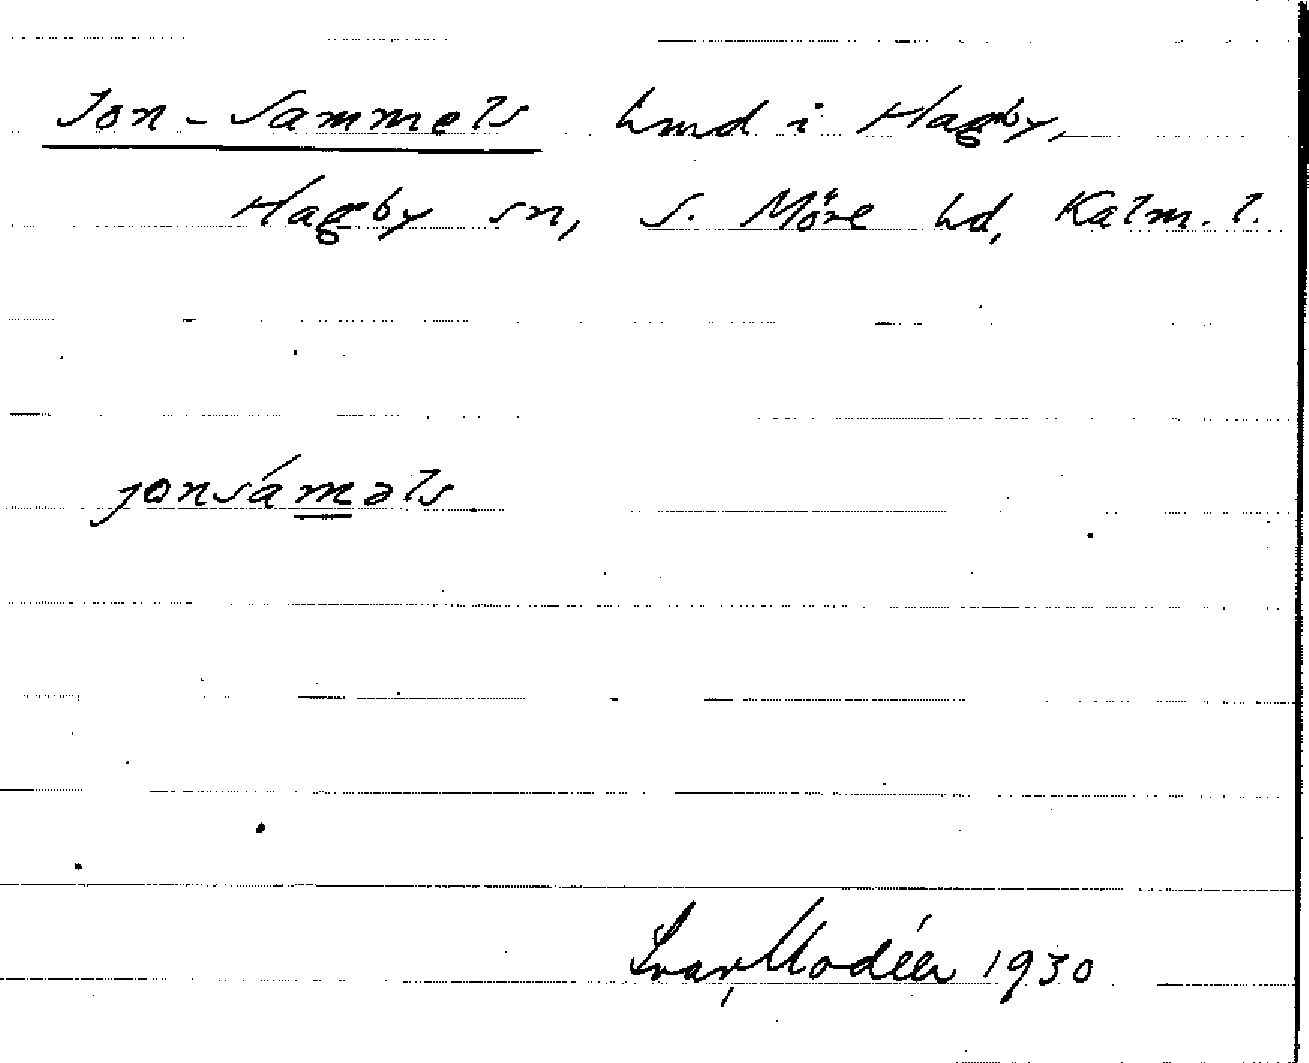 Jon-Sammels hmd i Hagby,
Hagby sn, S. Möre hd, Kalm. l.
jonsáməls
Ivar Modéer 1930